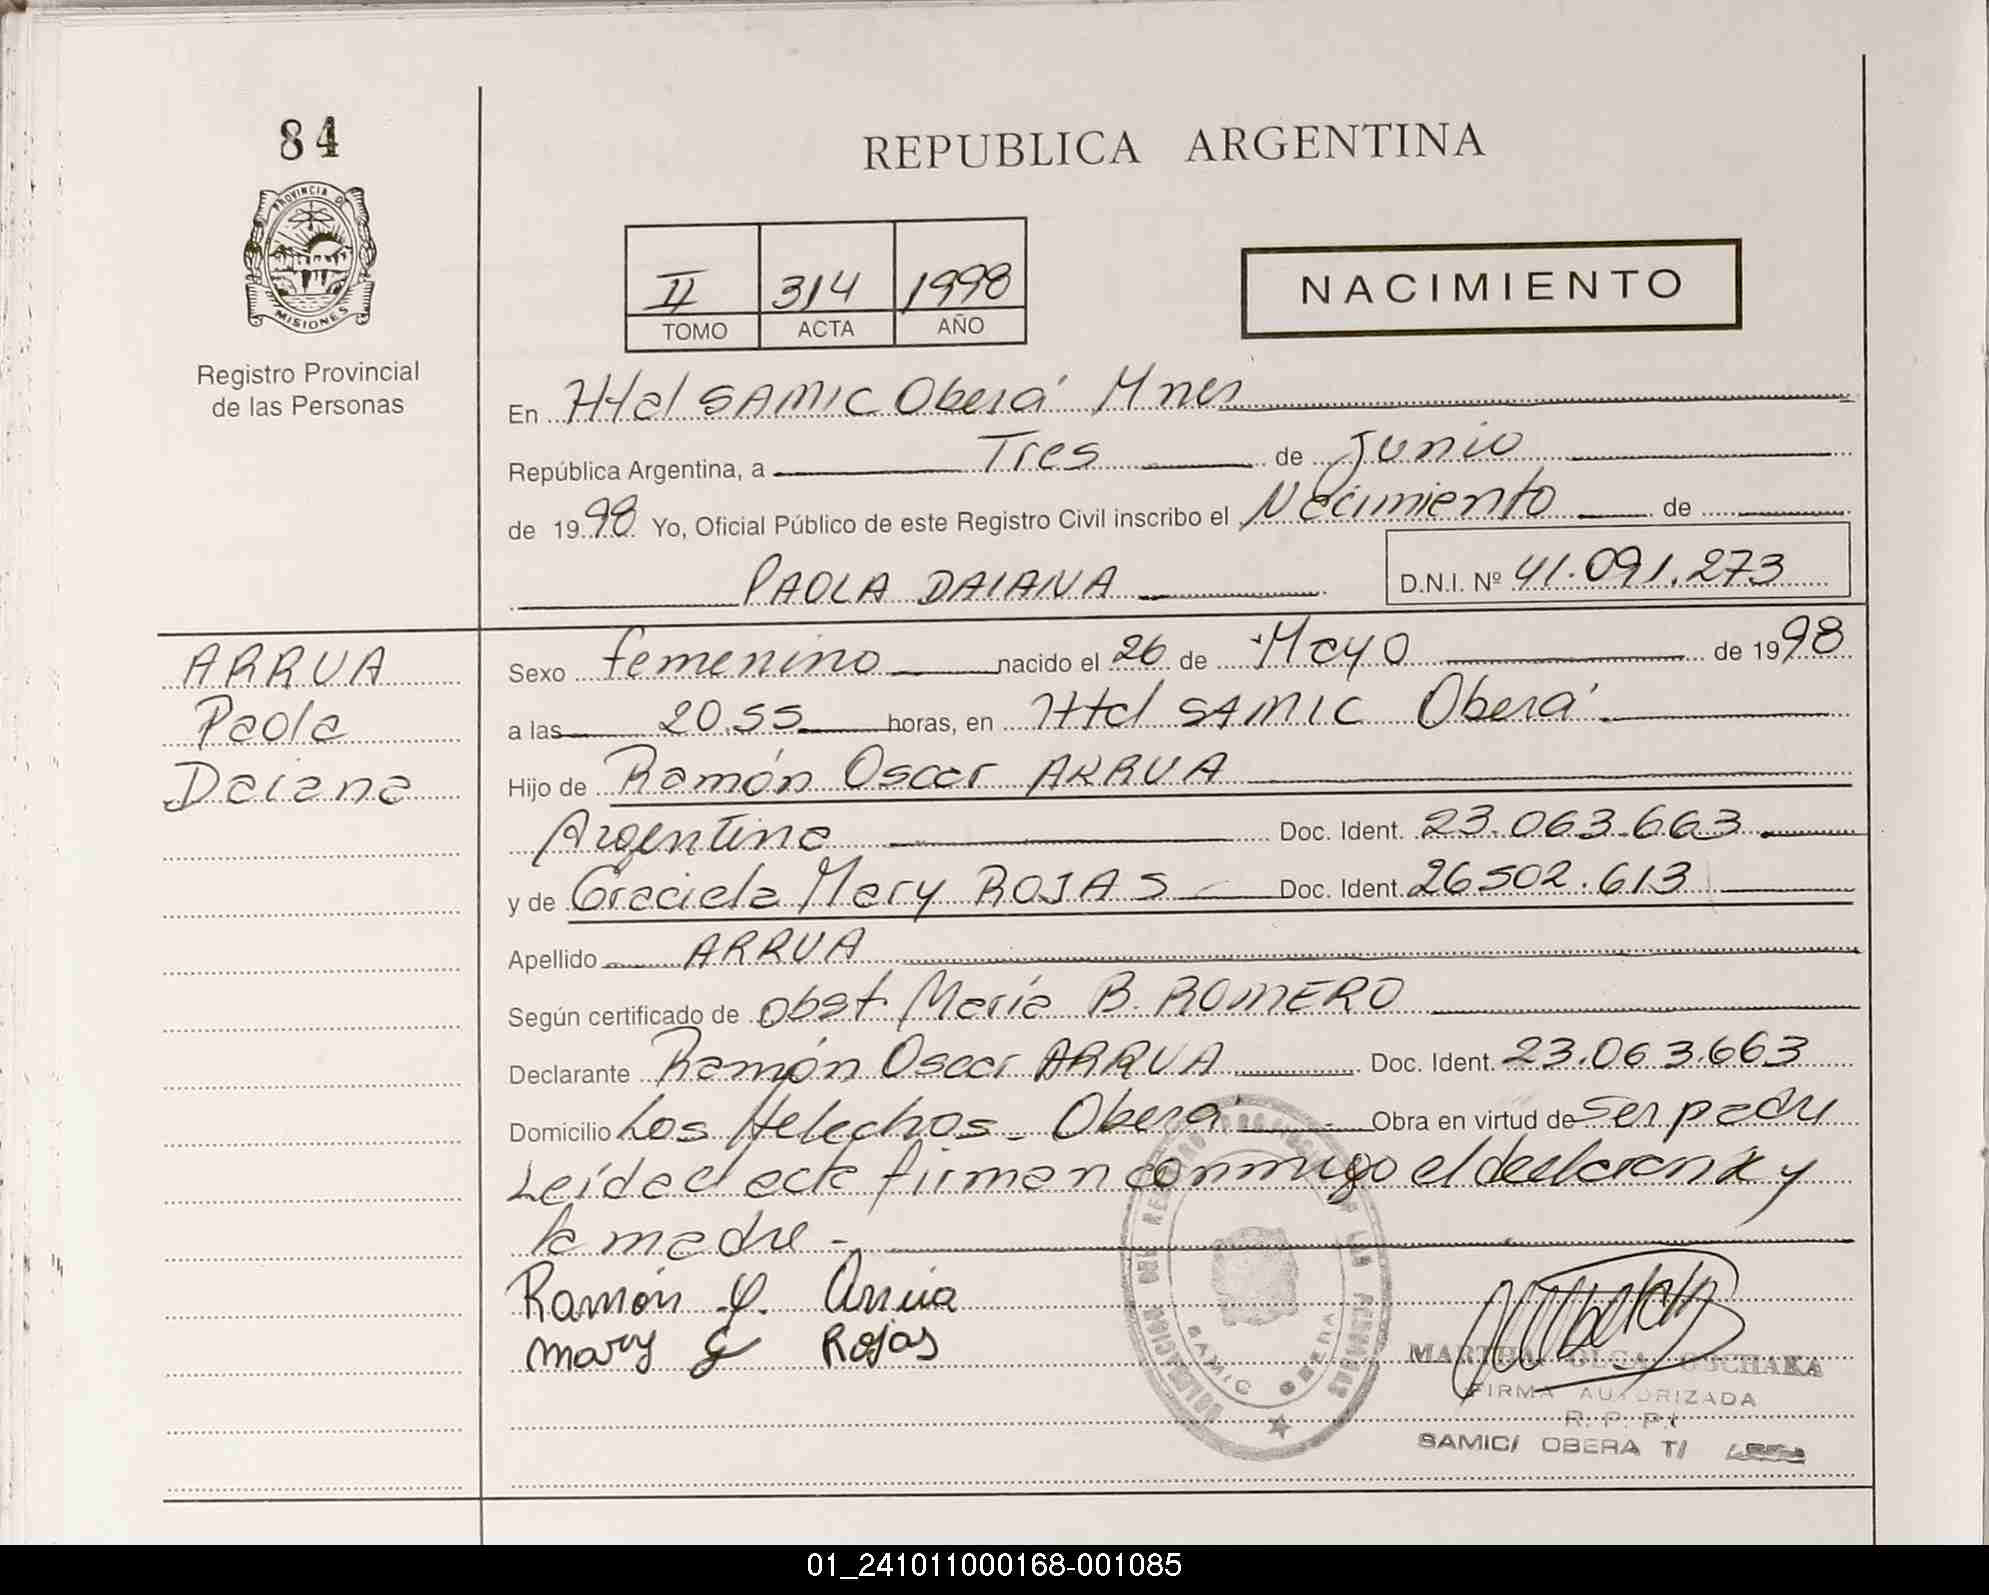 84
PROVINCIA DE
MISIONES
Registro Provincial
de las Personas
REPUBLICA ARGENTINA
II 314 1998
TOMO ACTA AÑO
NACIMIENTO
En Htal SAMIC Oberá Mnes
República Argentina, a Tres de Junio
de 1998 Yo, Oficial Público de este Registro Civil inscribo el Nacimiento de
PAOLA DAIANA D.N.I. Nº 41.091.273
ARRUA
Paola
Daiana
Sexo femenino nacido el 26 de Mayo de 1998
a las 20.55 horas, en Htal SAMIC Oberá
Hijo de Ramón Oscar ARRUA
Argentina Doc. Ident. 23.063.663
y de Graciela Mary ROJAS Doc. Ident. 26502.613
Apellido ARRUA
Según certificado de obst María B. ROMERO
Declarante Ramón Oscar ARRUA Doc. Ident. 23.063.663
Domicilio Los Helechos - Oberá Obra en virtud de ser padre
Leída el acta firman conmigo el declarante y
la madre -
Ramón O. Arrua
Mary G Rojas
SAMIC OBERA
MARTHA OLGA
FIRMA AUTORIZADA
R. P. P.
SAMIC/ OBERA
01_241011000168-001085